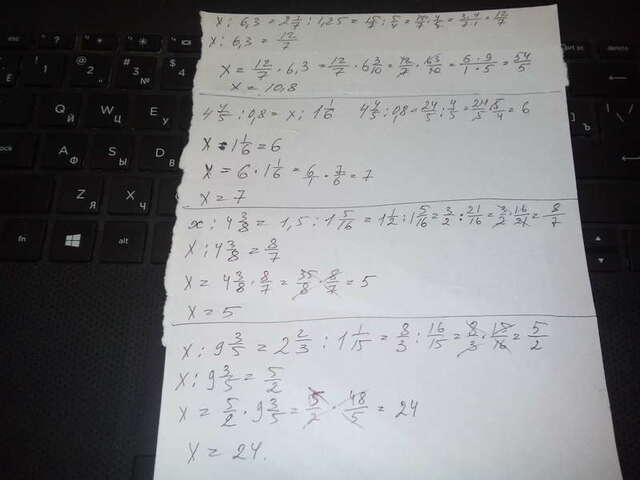 x : 6,3 = 2 1/7 : 1,25 = 15/7 : 5/4 = 15/7 · 4/5 = 3·4/7·1 = 12/7
x : 6,3 = 12/7
x = 12/7 · 6,3 = 12/7 · 6 3/10 = 12/7 · 63/10 = 6·9/1·5 = 54/5
x = 10,8
4 4/5 : 0,8 = x : 1 1/6   4 4/5 : 0,8 = 24/5 : 4/5 = 24/5 · 5/4 = 6
x : 1 1/6 = 6
x = 6 · 1 1/6 = 6/1 · 7/6 = 7
x = 7
x : 4 3/8 = 1,5 : 1 5/16 = 1 1/2 : 1 5/16 = 3/2 : 21/16 = 3/2 · 16/21 = 8/7
x : 4 3/8 = 8/7
x = 4 3/8 · 8/7 = 35/8 · 8/7 = 5
x = 5
x : 9 3/5 = 2 2/3 : 1 1/15 = 8/3 : 16/15 = 8/3 · 15/16 = 5/2
x : 9 3/5 = 5/2
x = 5/2 · 9 3/5 = 5/2 · 48/5 = 24
x = 24.